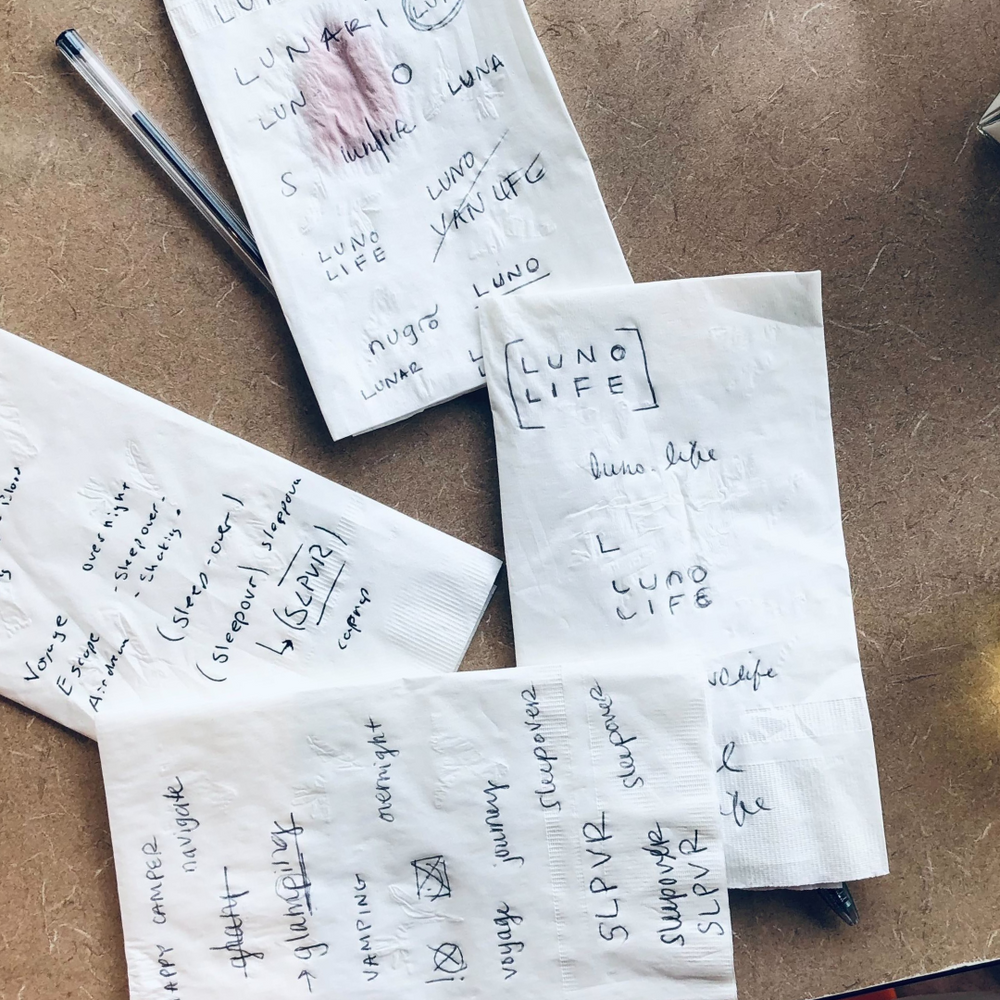 LUNARI
LUN O LUNA
luno life
S
LUNO
VAN LIFE
LUNO
LIFE
LUNO
nugrō
LUNAR
L
[LUNO
LIFE]
luno.life
L
LUNO
LIFE
life
overnight
- Sleepover -
- Sharing.
Voyage
Escape
Airdream
(Sleep-over)
(sleepovr) sleepova
↳ (SLPVR)
HAPPY CAMPER
navigate
→ glamping
VAMPING
overnight
voyage
journey
sleepover
SLPVR
sleepover
sleepover
SLPVR